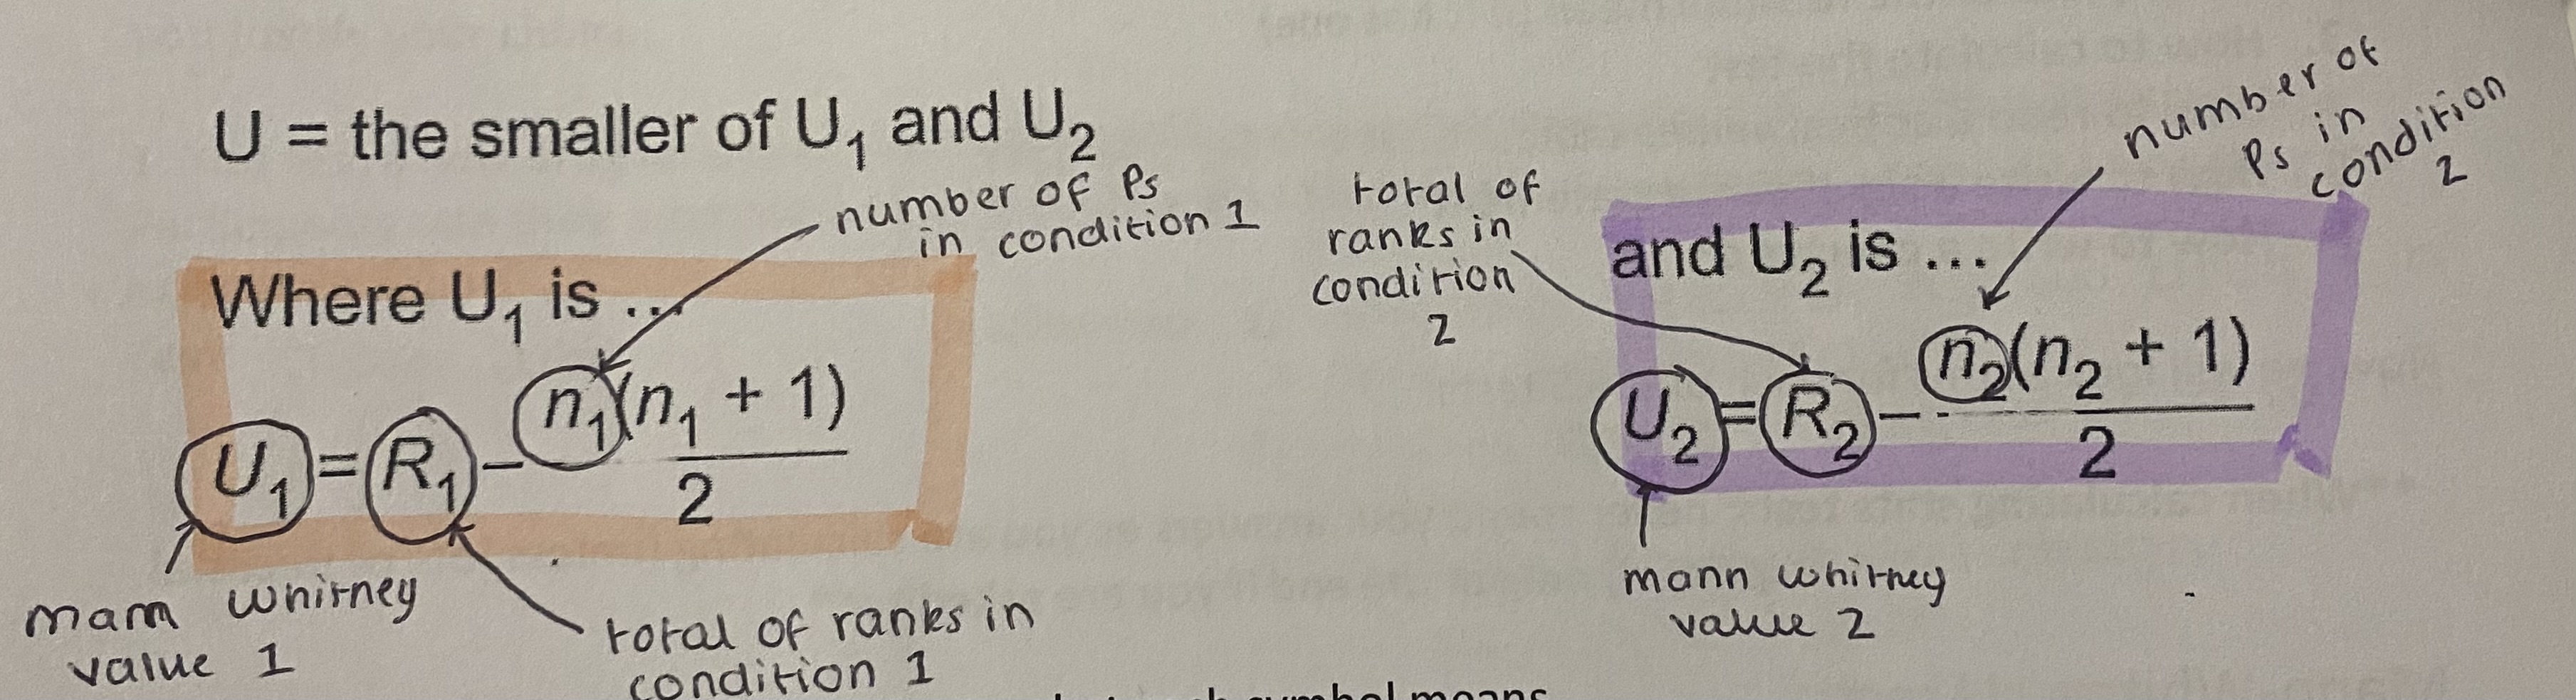 U = the smaller of U₁ and U₂
number of Ps
in condition 1
Where U₁ is ...
U₁ = R₁ − n₁(n₁ + 1)
2
mann whitney
value 1
total of ranks in
condition 1
total of
ranks in
condition
2
number of
Ps in
condition
2
and U₂ is ...
U₂ = R₂ − n₂(n₂ + 1)
2
mann whitney
value 2
symbol means